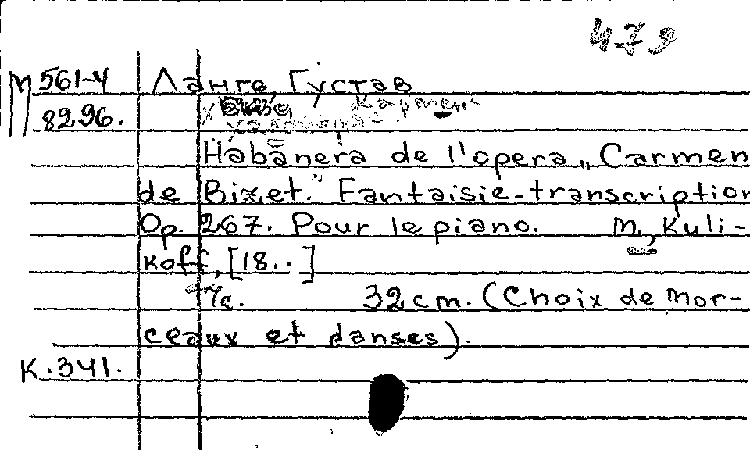 479
М 561-4 Ланге, Густав
8296. Кармен
Habanera de l'opera „Carmen
de Bizet." Fantaisie-transcription
Op 267. Pour le piano. M., Kuli-
koff, [18..]
7с. 32 cm. (Choix de mor-
ceaux et danses).
К.341.